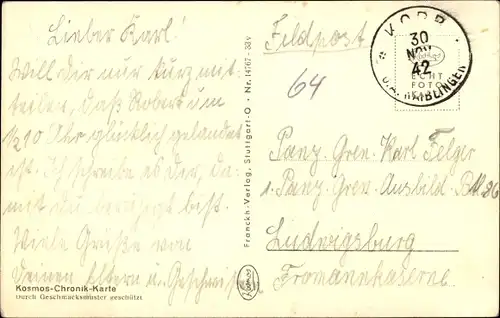 Lieber Karl!
Will Dir nur kurz mit-
teilen, daß Robert um
1/2 10 Uhr glücklich gelandet
ist. Ich schreibe es dir, da-
mit du beruhigt bist.
Viele Grüße von
Deinen Eltern u. Geschwister.
Kosmos-Chronik-Karte
Durch Geschmacksmuster geschützt
Franckh-Verlag, Stuttgart-O · Nr. 14767-33v
Kosmos
Feldpost
64
KORB
30
NOV
42
ECHT
FOTO
WAIBLINGEN
Panz. Gren. Karl Felger
1. Panz. Gren. Ausbild. Btl. 86
Ludwigsburg
Fromannkaserne.